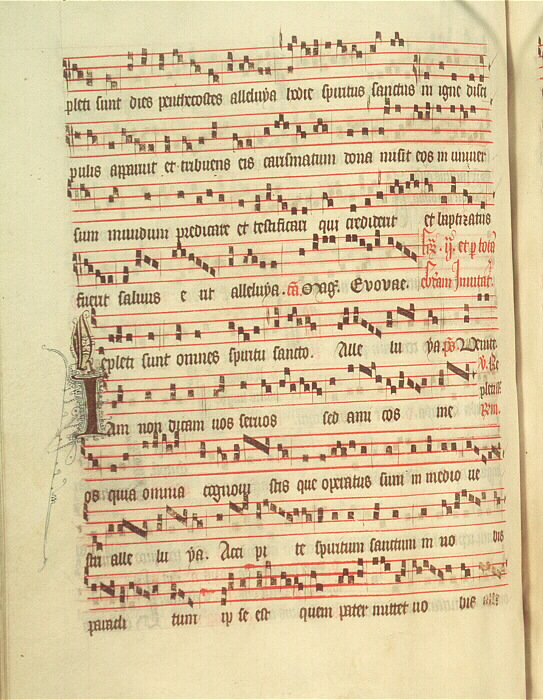 pleti sunt dies penthecostes alleluya hodie spiritus sanctus in igne disci
pulis apparuit et tribuens eis carismatum dona misit eos in univer
sum mundum predicare et testificari qui crediderit et baptizatus
fuerit salvus e rit alleluya. Mag. Evovae.
epleti sunt omnes spiritu sancto. Alle lu ya. ps Venite
Iam non dicam vos servos sed ami cos me
os quia omnia cognovi stis que operatus sum in medio ve
stri alle lu ya. Acci pi te spiritum sanctum in vo bis
paracli tum ip se est quem pater mittet vo bis alle